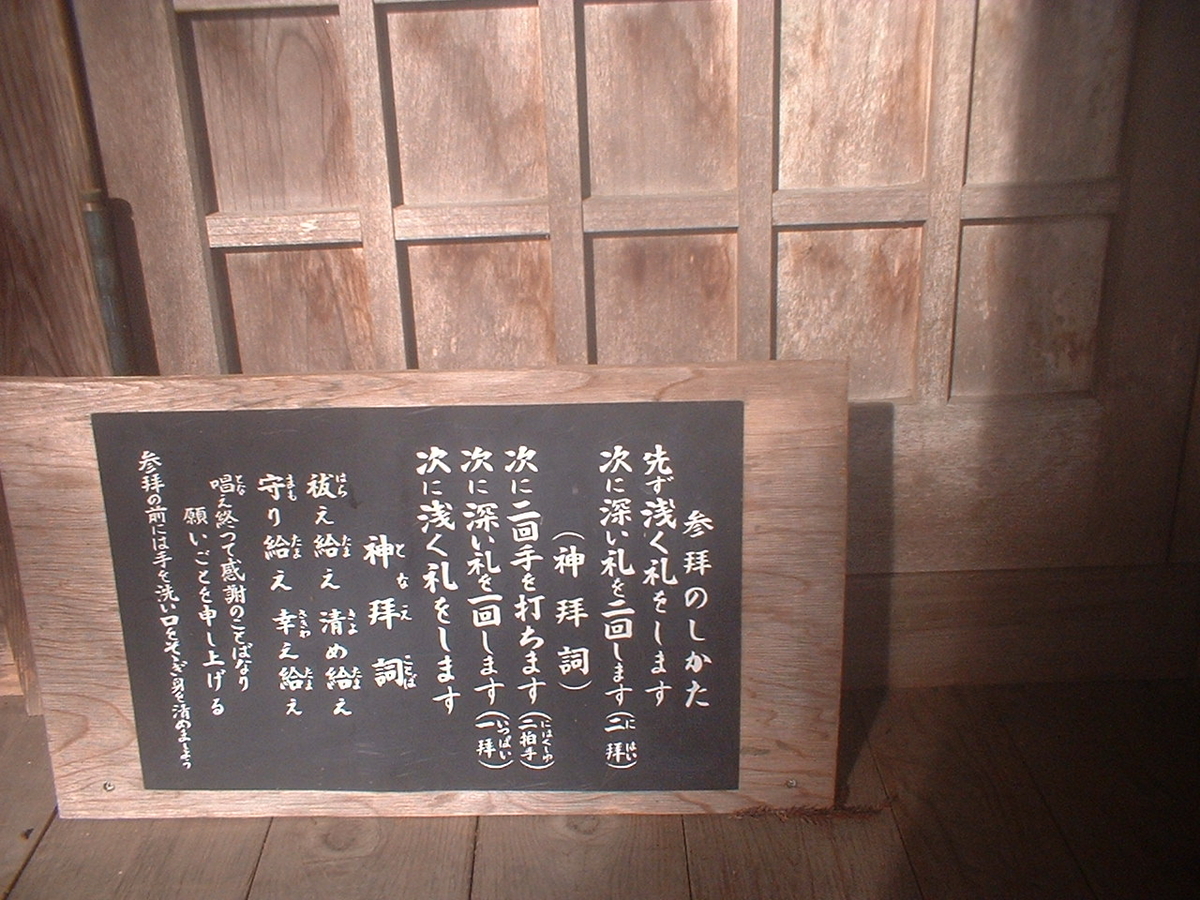 参拝のしかた
先ず浅く礼をします
次に深い礼を二回します(二拝)
(神拝詞)
次に二回手を打ちます(二拍手)
次に深い礼を一回します(一拝)
次に浅く礼をします
神拝詞
祓え給え 清め給え
守り給え 幸え給え
唱え終って感謝のことばなり
願いごとを申し上げる
参拝の前には手を洗い口をそゝぎ身を清めましょう